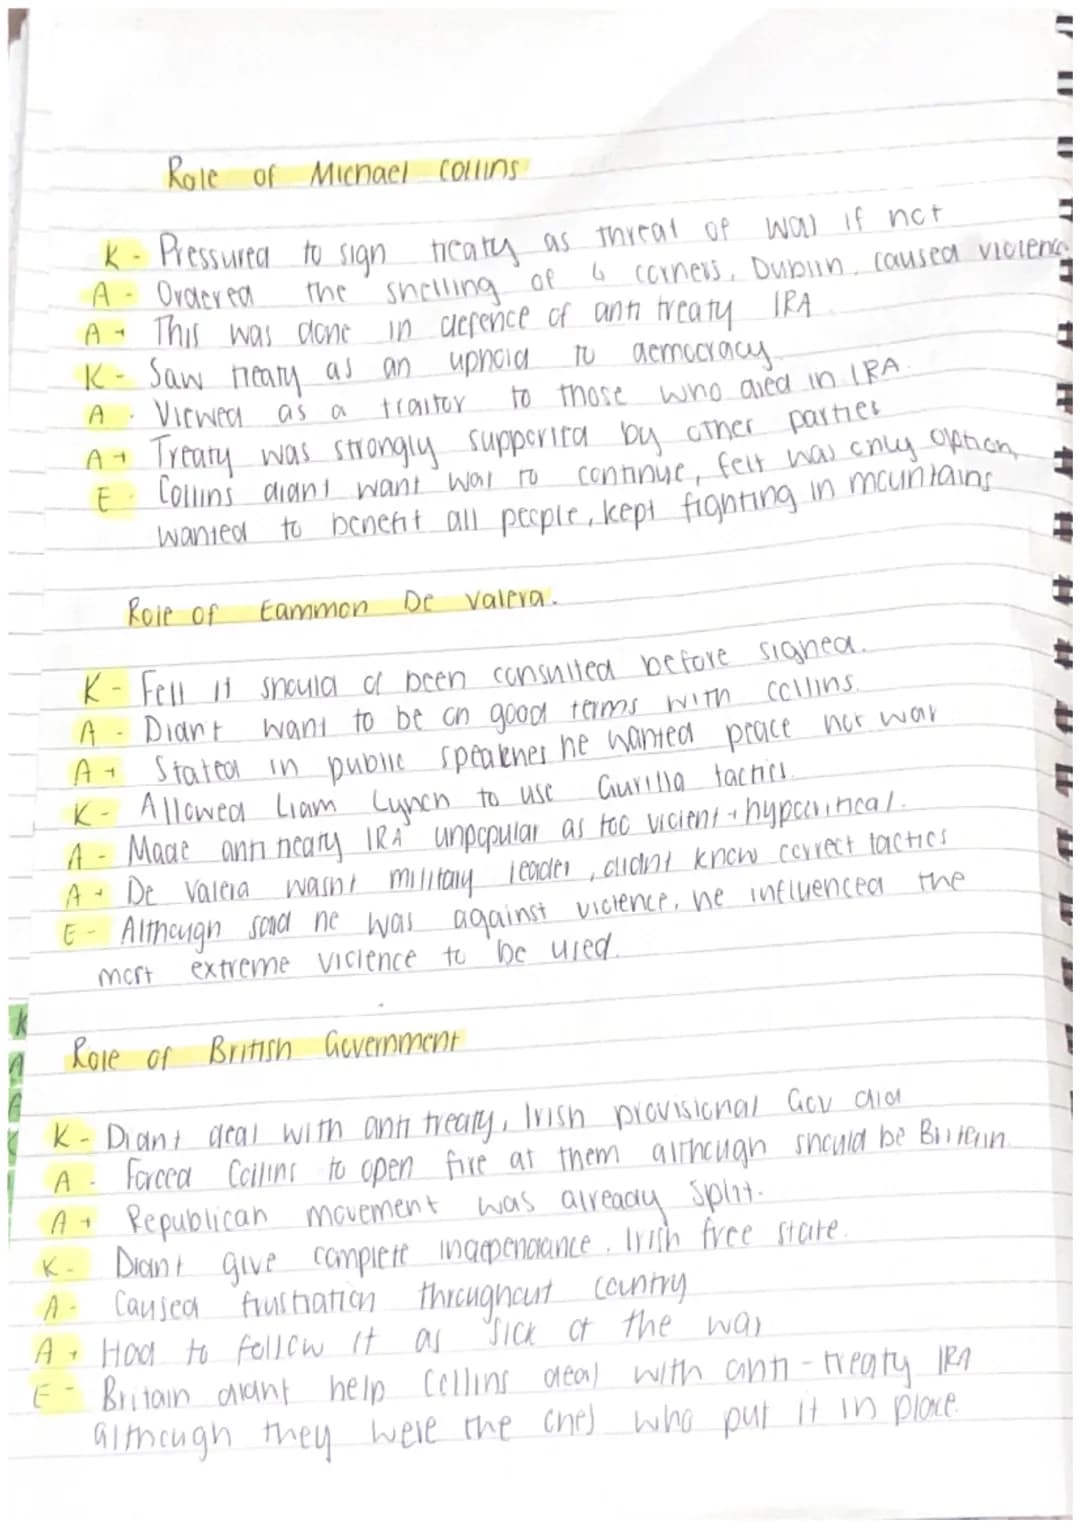 Role of Michael Collins
K - Pressured to sign treaty as threat of war if not
A - Ordered the shelling of 4 corners, Dublin, caused violence
A+ This was done in defence of anti treaty IRA
K - Saw treaty as an uphold to democracy
A - Viewed as a traitor to those who died in IRA.
A+ Treaty was strongly supported by other parties
E - Collins didnt want war to continue, felt was only option,
wanted to benefit all people, kept fighting in mountains
Role of Eammon De Valera.
K - Felt it should of been consulted before signed.
A - Didnt want to be on good terms with Collins.
A+ Stated in public he wanted peace not war
K - Allowed Liam Lynch to use Gurilla tactics.
A - Made anti treaty IRA unpopular as too violent + hypocritical.
A+ De Valera wasnt military leader, didnt know correct tactics
E - Although said he was against violence, he influenced the
most extreme violence to be used.
K
A
Role of British Government
K - Didnt deal with anti treaty, Irish provisional Gov did
A - Forced Collins to open fire at them although should be Britain.
A+ Republican movement was already split.
K - Didnt give complete independance. Irish free state.
A - Caused frustration throughout country
A+ Had to follow it as sick of the war
E - Britain didnt help Collins deal with anti-treaty IRA
although they were the ones who put it in place.